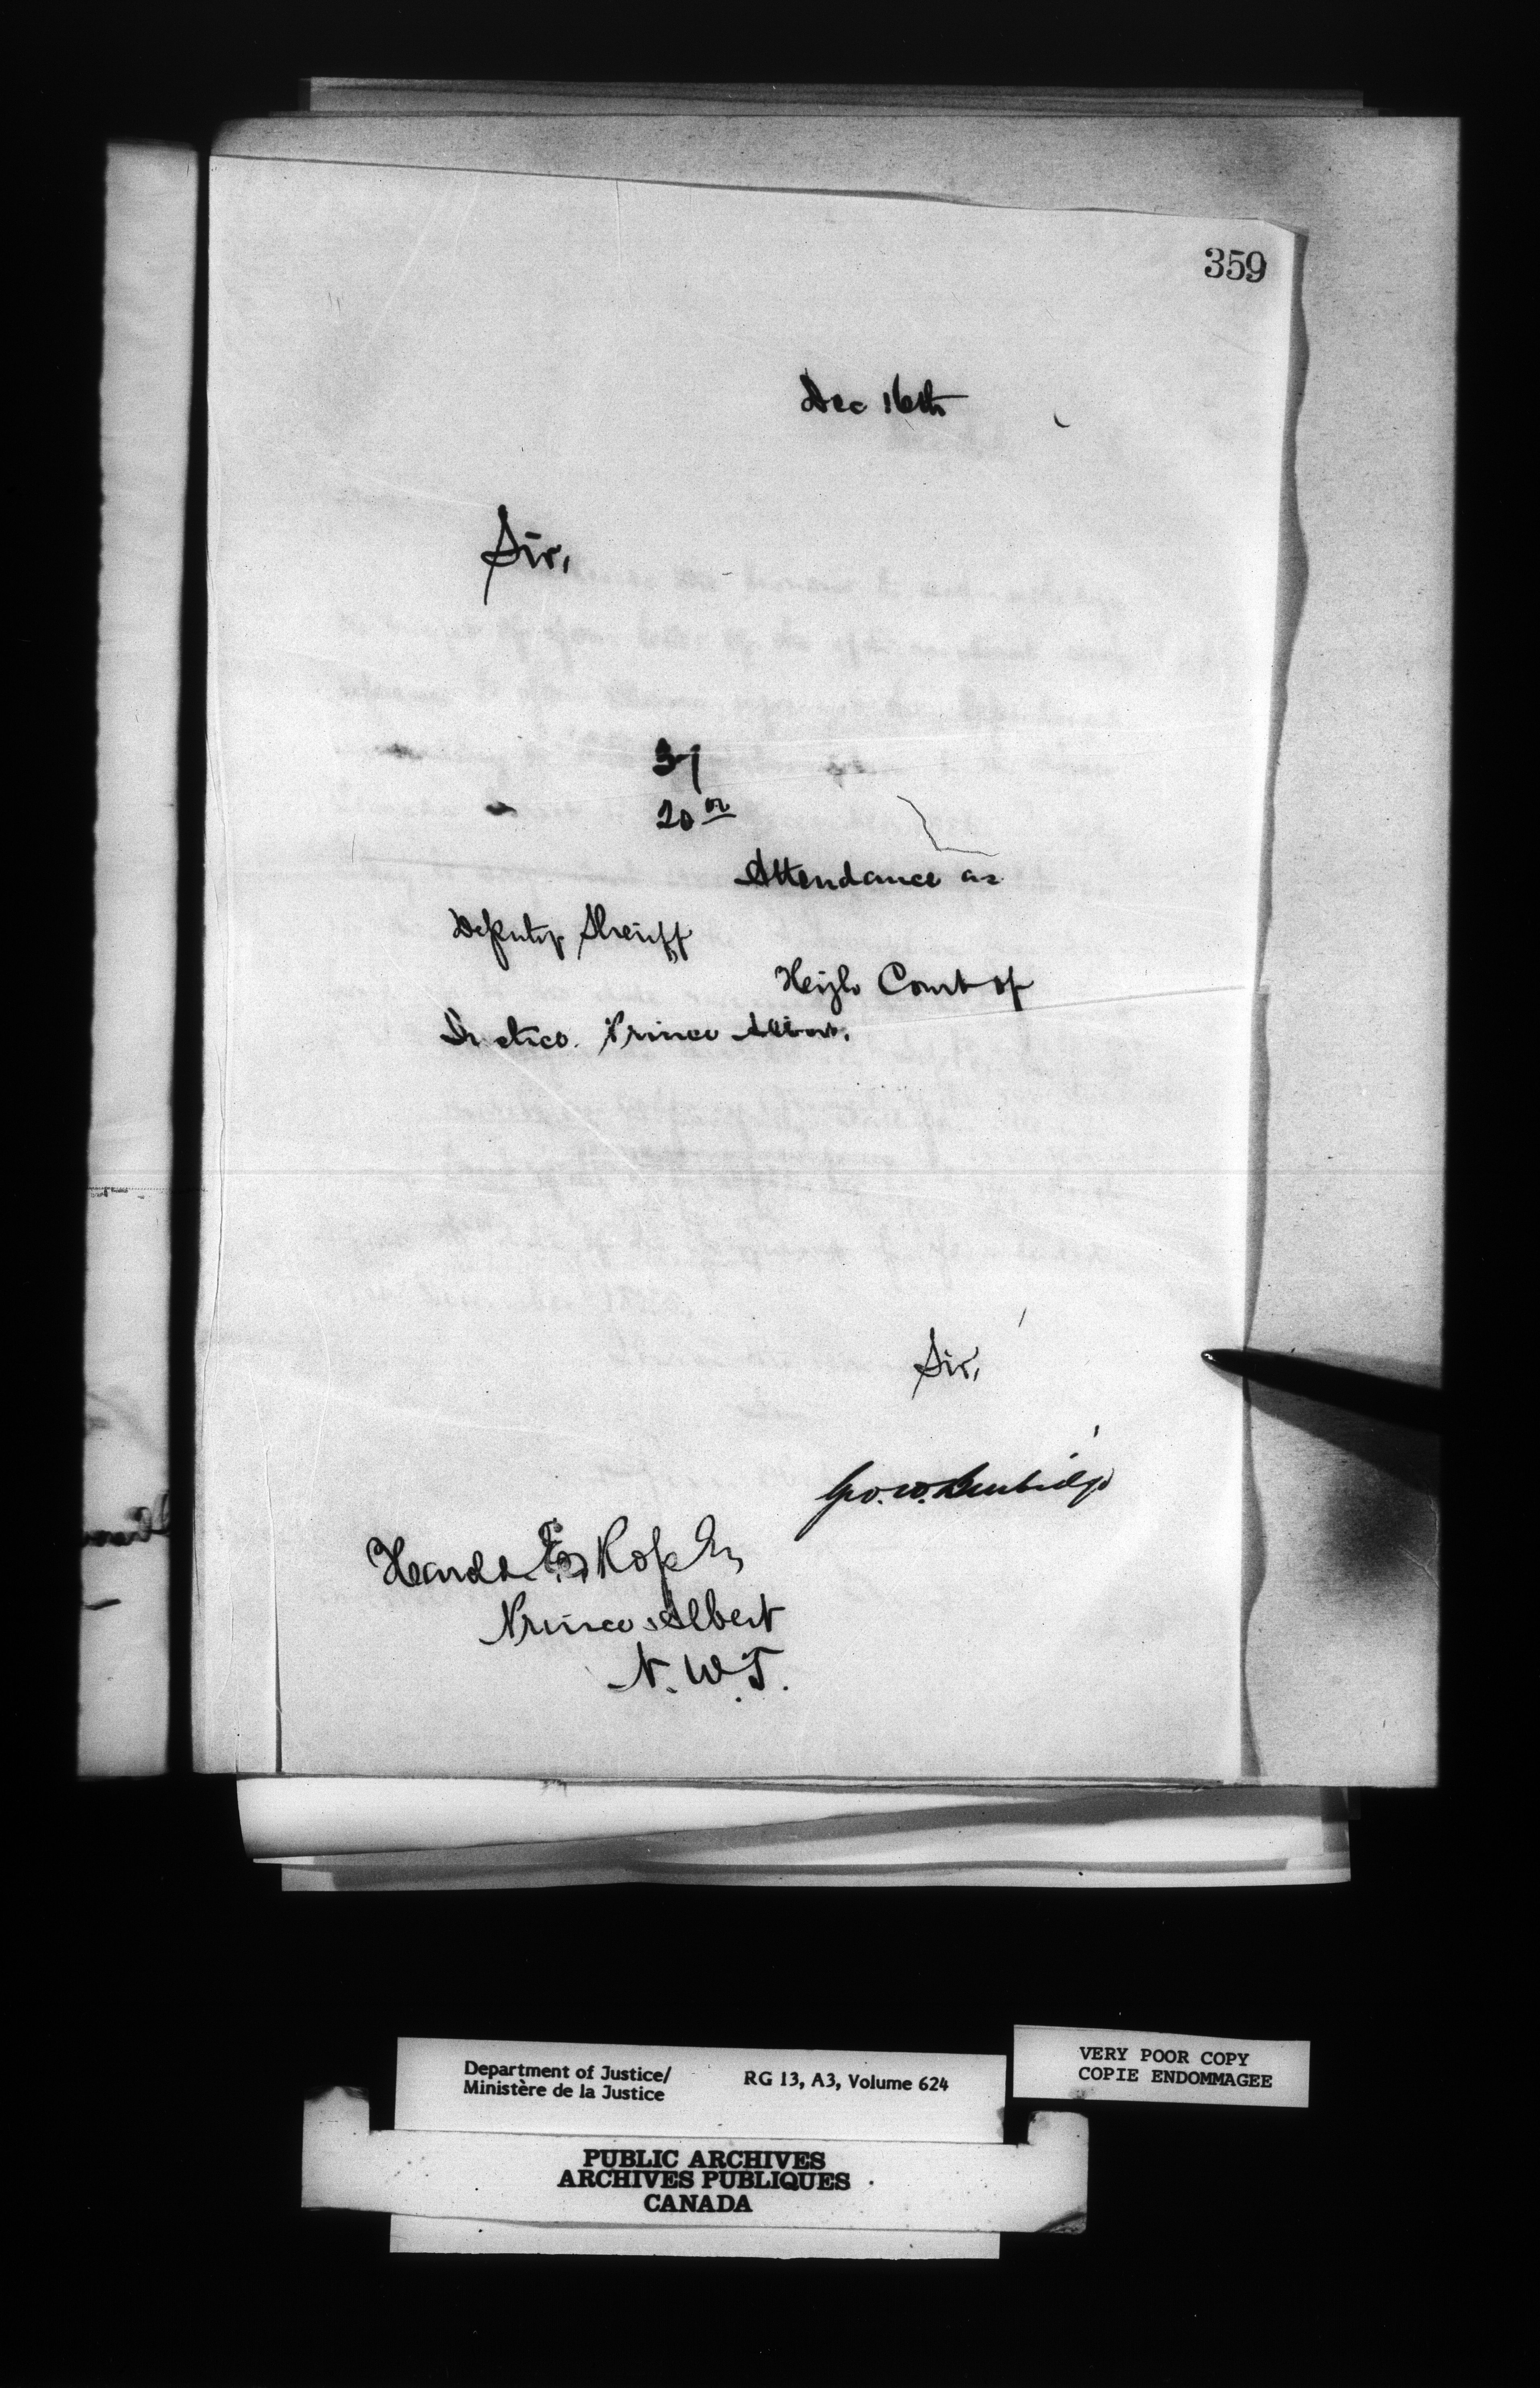 359
Dec 16th
Sir,
31
20 00
Attendance as
Deputy Sheriff
High Court of
Justice. Prince Albert.
Sir,
Geo. W. Burbidge
Prince Albert
N. W. T.
Department of Justice/
Ministère de la Justice
RG 13, A3, Volume 624
VERY POOR COPY
COPIE ENDOMMAGEE
PUBLIC ARCHIVES
ARCHIVES PUBLIQUES
CANADA